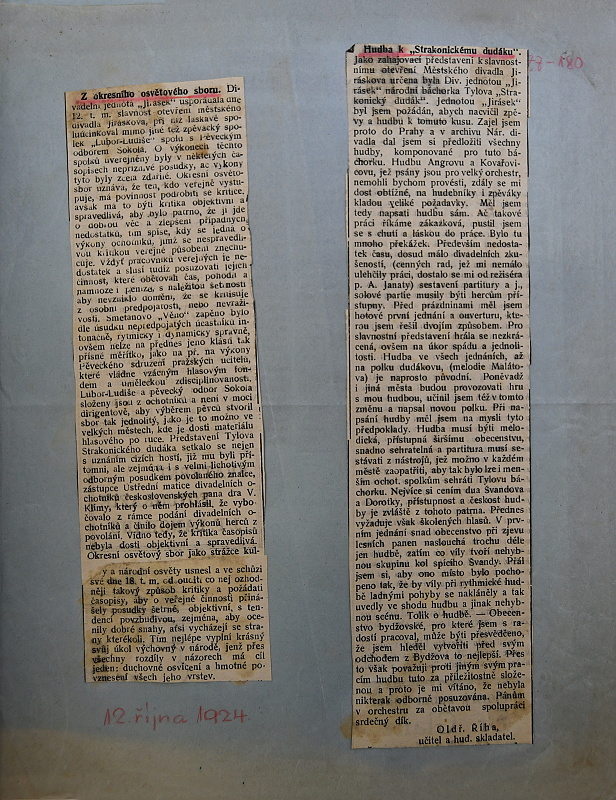 Z okresního osvětového sboru. Di-
vadelní jednota „Jirásek“ uspořádala dne
12. t. m. slavnost otevření městského
divadla Jiráskova, při níž laskavě spo-
luúčinkoval mimo jiné též zpěvácký spo-
lek „Lubor-Ludiše“ spolu s Pěveckým
odborem Sokola. O výkonech těchto
spolků uveřejněny byly v některých ča-
sopisech nepříznivé posudky, ač výkony
tyto byly zcela zdařilé. Okresní osvěto-
sbor uznává, že ten, kdo veřejně vystu-
puje, má povinnost podrobiti se kritice,
avšak má to býti kritika objektivní a
spravedlivá, aby bylo patrno, že jí jde
o dobrou věc a zlepšení případných
nedostatků, tím spíše, kdy se jedná o
výkony ochotníků, jimž se nespravedli-
vou kritikou veřejné působení znechu-
cuje. Vždyť pracovníků veřejných je ne-
dostatek a sluší tudíž posuzovati jejich
činnost, které obětovali čas, pohodlí a
namnoze i peníze, s náležitou šetrností
aby nevznikla domněn, že se kritisuje
z osobní předpojatosti, nebo nevraži-
vosti. Smetanovo „Věno“ zapěno bylo
dle úsudku nepředpojatých účastníků in-
tonačně, rytmicky i dynamicky správně,
ovšem nelze na přednes jeho klásti tak
přísné měřítko, jako na př. na výkony
Pěveckého sdružení pražských učitelů,
které vládne vzácným hlasovým fon-
dem a uměleckou zdisciplinovaností.
Lubor-Ludiše a pěvecký odbor Sokola
složeny jsou z ochotníků a není v moci
dirigentově, aby výběrem pěvců stvořil
sbor tak jednolitý, jako je to možno ve
velkých městech, kde je dosti materiálu
hlasového po ruce. Představení Tylova
Strakonického dudáka setkalo se nejen
s uznáním cizích hostí, již mu byli pří-
tomni, ale zejména i s velmi lichotivým
odborným posudkem povolaného znalce,
zástupce Ústřední matice divadelních o-
chotníků československých pana dra V.
Klimy, který o něm prohlásil, že vybo-
čovalo z rámce podání divadelních o-
chotníků a činilo dojem výkonů herců z
povolání. Vidno tedy, že kritika časopisů
nebyla dosti objektivní a spravedlivá.
Okresní osvětový sbor jako strážce kul-
y a národní osvěty usnesl a ve schůzi
své dne 18. t. m. odsouditi co nej ozhod-
něji takový způsob kritiky a požádati
časopisy, aby o veřejné činnosti přiná-
šely posudky šetrné, objektivní, s ten-
dencí povzbudivou, zejména, aby oce-
nily dobré snahy, ať si vycházejí se stra-
ny kterékoli. Tím nejlépe vyplní krásný
svůj úkol výchovný v národě, jenž přes
všechny rozdíly v názorech má cíl
jeden: duchovné osvícení a hmotné po-
vznesení všech jeho vrstev.
12. října 1924.
Hudba k „Strakonickému dudáku“.
Jako zahajovací představení k slavnost-
nímu otevření Městského divadla Ji-
ráskova určena byla Div. jednotou „Ji-
rásek“ národní báchorka Tylova „Stra-
konický dudák“. Jednotou „Jirásek“
byl jsem požádán, abych nacvičil zpě-
vy a hudbu k tomuto kusu. Zajel jsem
proto do Prahy a v archivu Nár. di-
vadla dal jsem si předložiti všechny
hudby, komponované pro tuto bá-
chorku. Hudbu Angrovu a Kovařovi-
covu, jež psány jsou pro velký orchestr,
nemohli bychom provésti, zdály se mi
dost obtížné, na hudebníky i zpěváky
kladou veliké požadavky. Měl jsem
tedy napsati hudbu sám. Ač takové
práci říkáme zakázková, pustil jsem
se s chutí a láskou do práce. Bylo tu
mnoho překážek. Především nedosta-
tek času, dosud málo divadelních zku-
šeností, (cenných rad, jež mi nemálo
ulehčily práci, dostalo se mi od režiséra
p. A. Janaty) sestavení partitury a j.,
solové partie musily býti hercům pří-
stupny. Před prázdninami měl jsem
hotové první jednání a ouverturu, kte-
rou jsem řešil dvojím způsobem. Pro
slavnostní představení hrála se nezkrá-
cená, ovšem na úkor spádu a jednoli-
tosti. Hudba ve všech jednáních, až
na polku dudákovu, (melodie Maláto-
va) je naprosto původní. Poněvadž
i jiná města budou provozovati hru
s mou hudbou, učinil jsem též v tomto
změnu a napsal novou polku. Při na-
psání hudby měl jsem na mysli tyto
předpoklady. Hudba musí býti melo-
dická, přístupná širšímu obecenstvu,
snadno sehratelná a partitura musí se-
stávati z nástrojů, jež možno v každém
městě zaopatřiti, aby tak bylo lze i men-
ším ochot. spolkům sehráti Tylovu bá-
chorku. Nejvíce si cením dua Švandova
a Dorotky, přístupnost a českost hud-
by je zvláště z tohoto patrna. Přednes
vyžaduje však školených hlasů. V pr-
vním jednání snad obecenstvo při zjevu
lesních panen naslouchá trochu déle
jen hudbě, zatím co víly tvoří nehyb-
nou skupinu kol spícího Švandy. Přál
jsem si, aby ono místo bylo pocho-
peno tak, že by víly při rytmické hud-
bě ladnými pohyby se nakláněly a tak
uvedly ve shodu hudbu a jinak nehyb-
nou scénu. Tolik o hudbě. — Obecen-
stvo bydžovské, pro které jsem s ra-
dostí pracoval, může býti přesvědčeno,
že jsem hleděl vytvořiti před svým
odchodem z Bydžova to nejlepší. Přes
to však považuji proti jiným svým pra-
cím hudbu tuto za příležitostně slože-
nou a proto je mi vítáno, že nebyla
nikterak odborně posuzována. Pánům
v orchestru za obětavou spolupráci
srdečný dík.
Oldř. Říha,
učitel a hud. skladatel.